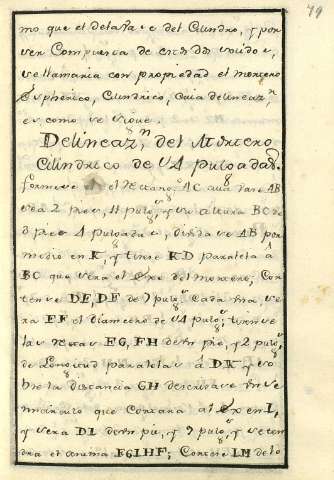 79
mo que el de la Ra e del Cilindro, y por
ser Compuesta de estos dos solidos,
se llamaria con propiedad el mortero
Espherico, Cilindrico, cuia delineaz.n
es como se sigue.
Delineaz.n del Mortero
Cilindrico de 9 pulgadas.
formese el Rectang. AC cuia vase AB
sea 2 pies, 11 pulg.s y su altura BC de
3 pies 4 pulgadas, divida se AB por
medio en K, y tirese KD paralela á
BC que sera el Exe del mortero; Cor
tense DE, DF de 7 pulg.s Cada una, se
ra EF el diametro de 9 pulg.s tirense
las rectas EG, FH de un pie, y 2 pulg.s
de Longitud paralelas á DK y so
bre la distancia GH describase un se
micirculo que Cortara al Exe en I,
y sera DI de un pie, y 9 pulg.s y se ten
dra el anima EGIHF; Cortese IM de lo